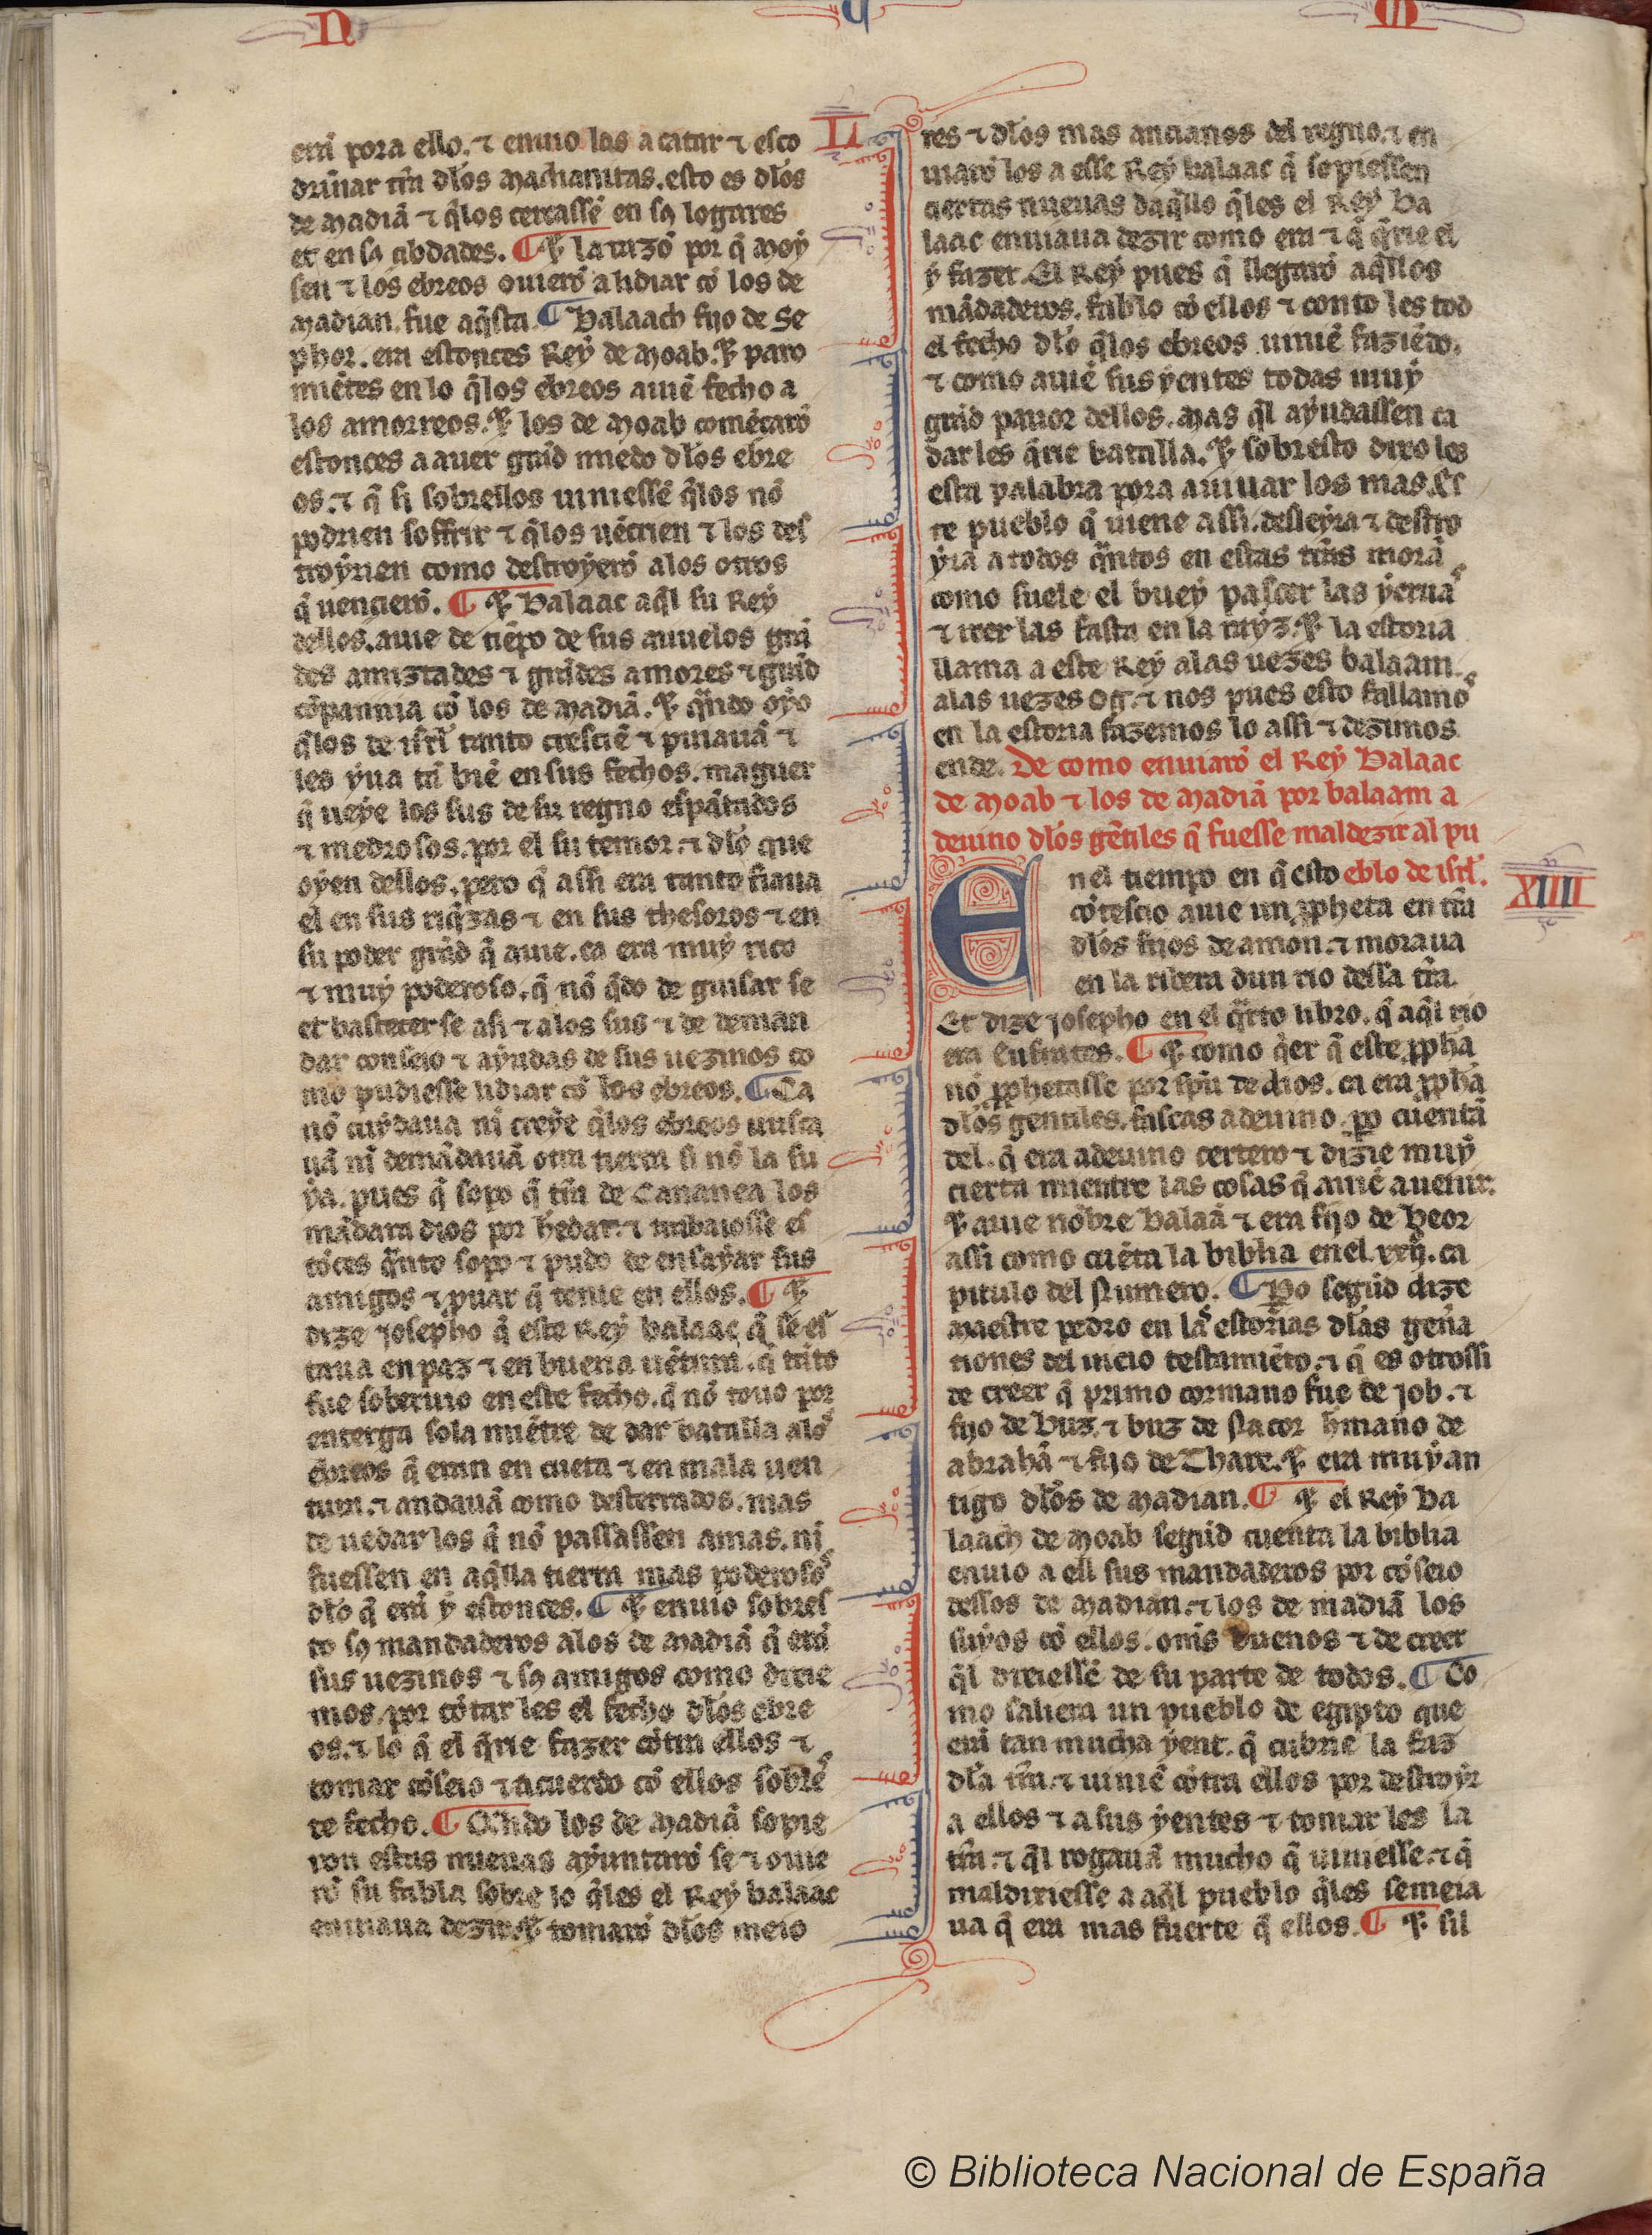 N U M
erã pora ello. ⁊ enuio las a catar ⁊ esco
drinnar tr̃ra dlos Machanitas. esto es dlos
de Madiã ⁊ q̃los cercassẽ en sꝯ logares
et en sꝯ cibdades. ¶ Et la razõ por q̃ Moẏ
sen ⁊ los ebreos ouierõ a lidiar cõ los de
Madian. fue aq̃sta. ¶ Balaach fijo de Se
phor. era estonces Reẏ de Moab. Et paro
miẽtes en lo q̃los ebreos auiẽ fecho a
los amorreos. Et los de Moab comẽçarõ
estonces a auer grãd miedo dlos ebre
os. ⁊ q̃ si sobrellos uiniessẽ q̃los nõ
podrien soffrir ⁊ q̃los uẽçrien ⁊ los des
troẏrien como destroẏerõ alos otros
q̃ uencierõ. ¶ Et Balaac aq̃l su Reẏ
dellos. auie de tiẽpo de sus auuelos grã
des amiztades ⁊ grãdes amores ⁊ grãd
cõpannia cõ los de Madiã. Et qñdo oẏo
q̃los de isrl̃ tanto crescie ⁊ puiauã ⁊
les ẏua tã biẽ en sus fechos. maguer
q̃ ueẏe los sus de su regno espãtados
⁊ medrosos. por el su temor. ⁊ dlo que
oẏen dellos. pero q̃ assi era tanto fiaua
el en sus riq̃zas ⁊ en sus thesoros ⁊ en
su poder grãd q̃ auie. ca era muẏ rico
⁊ muẏ poderoso. q̃ nõ q̃do de guisar se
et bastecer se asi ⁊ alos sus ⁊ de deman
dar conseio ⁊ aẏudas de sus uezinos co
mo pudiesse lidiar cõ los ebreos. ¶ Ca
nõ cuẏdaua ni creẏe q̃los ebreos busca
uã nĩ demãdauã otra tierra si nõ la su
ẏa. pues q̃ sopo q̃ tr̃ra de Cananea los
mãdara dios por hedar. ⁊ trabaiosse es
tõces qñto sopo ⁊ pudo de ensaẏar sus
amigos ⁊ puar q̃ tenie en ellos. ¶ Et
dize Josepho q̃ este Reẏ balaac q̃ se es
taua en paz ⁊ en buena uẽtura. q̃ tãto
fue soberuio en este fecho. q̃ nõ touo por
enterga sola miẽtre de dar batalla alos
ebreos q̃ eran en cueta ⁊ en mala uen
tura. ⁊ andauã como desterrados. mas
de uedar los q̃ nõ passassen a mas. ni
fuessen en aq̃lla tierra mas poderosos
dlo q̃ erã ẏ estonces. ¶ Et enuio sobres
to sꝯ mandaderos alos de Madiã q̃ erã
sus uezinos ⁊ sꝯ amigos como dixie
mos. por cõtar les el fecho dlos ebre
os. ⁊ lo q̃ el q̃rie fazer cõtra ellos ⁊
tomar cõseio ⁊ acuerdo cõ ellos sobres
te fecho. ¶ Qñdo los de Madiã sopie
ron estas nueuas aẏuntarõ se ⁊ ouie
rõ su fabla sobre lo q̃les el Reẏ balaac
enuiaua dezir. Et tomarõ dlos meio
LI
res ⁊ dlos mas ancianos del regno. ⁊ en
uiarõ los a esse Reẏ balaac q̃ sopiessen
ciertas nueuas daq̃llo q̃les el Reẏ Ba
laac enuiaua dezir como era ⁊ q̃ q̃rie el
ẏ fazer. El Reẏ pues q̃ llegarõ aq̃llos
mãdaderos. fablo cõ ellos ⁊ conto les tod
el fecho dlo q̃los ebreos uiniẽ faziẽdo.
⁊ como auiẽ sus ẏentes todas muẏ
grãd pauor dellos. Mas q̃l aẏudassen ca
dar les q̃rie batalla. Et sobresto dixo les
esta palabra pora auiuar los mas. Es
te pueblo q̃ uiene assi. desleẏra ⁊ destro
ẏra a todos qñtos en estas tr̃ras morã
como suele el bueẏ pascer las ẏeruas
⁊ roer las fasta en la raẏz. Et la estoria
llama a este Reẏ alas uezes balaam.
alas uezes Og. ⁊ nos pues esto fallamos
en la estoria fazemos lo assi ⁊ dezimos
ende. De como enuiarõ el Rey Balaac
de Moab ⁊ los de Madiã por balaam a
deuino dlos gẽtiles q̃ fuesse maldezir al pu
eblo de isrl̃.
XIIII
En el tiempo en q̃ esto
cõtescio auie un ꝓpheta en tr̃ra
dlos fijos de amon. ⁊ moraua
en la ribera dun rio dessa tr̃ra.
Et dize josepho en el q̃rto libro. q̃ aq̃l rio
era Eufrates. ¶ Et como q̃er q̃ este ꝓpha
nõ ꝓphetasse por spũ de dios. ca era ꝓpha
dlos gentiles. fascas adeuino. ꝑo cuentã
del. q̃ era adeuino certero ⁊ dizie muẏ
cierta mientre las cosas q̃ auiẽ auenir.
Et auie nõbre Balaã ⁊ era fijo de Beor
assi como cuẽta la biblia en el. xxij. ca
pitulo del Numero. ¶ ꝑo segũd dize
Maestre pedro en las estorias dlas gen̾a
tiones del uieio testamiẽto. ⁊ q̃ es otrossi
de creer q̃ primo cormano fue de job. ⁊
fijo de Buz. ⁊ buz de Nacor hermano de
abrahã ⁊ fijo de Thare. Et era muẏ an
tigo dlos de Madian. ¶ Et el Reẏ Ba
laach de Moab segũd cuenta la biblia
enuio a ell sus mandaderos por cõseio
dessos de Madian. ⁊ los de madiã los
suẏos cõ ellos. om̃s buenos ⁊ de creer
q̃l dixiessẽ de su parte de todos. ¶ Co
mo saliera un pueblo de egipto que
erã tan mucha ẏent. q̃ cubrie la faz
dla tr̃ra. ⁊ uiniẽ cõtra ellos por destroẏr
a ellos ⁊ a sus ẏentes ⁊ tomar les la
tr̃ra. ⁊ q̃l rogauã mucho q̃ uiniesse. ⁊ q̃
maldixiesse a aq̃l pueblo q̃les semeia
ua q̃ era mas fuerte q̃ ellos. ¶ Et sil
© Biblioteca Nacional de España